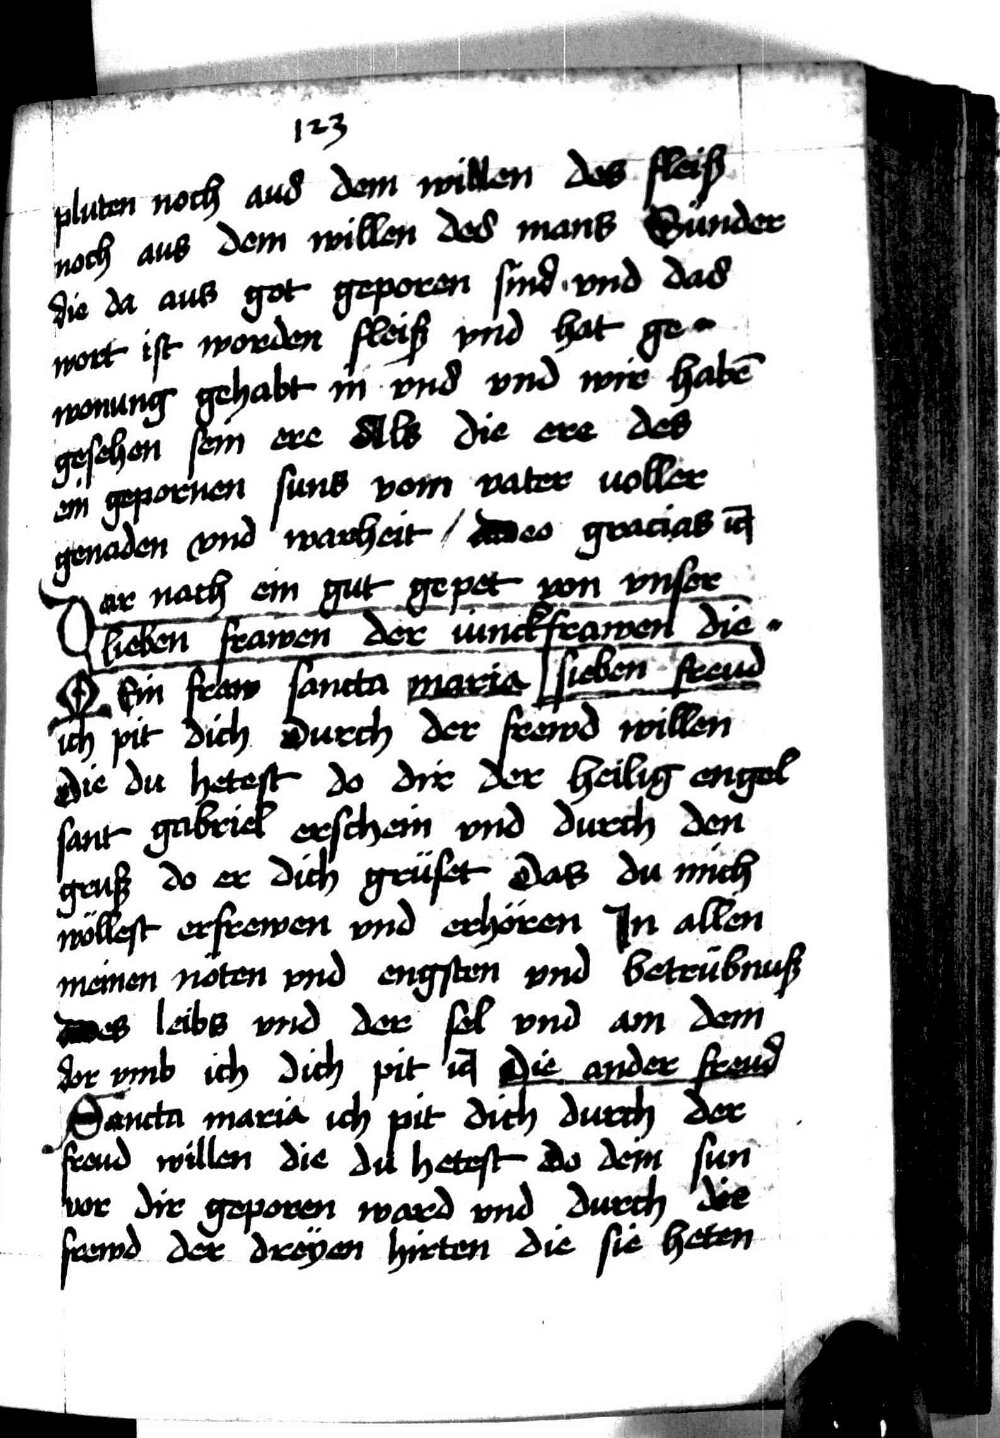 123
pluten noch aus dem willen des fleiß
noch aus dem willen des mans Sünder
die da aus got geporen sind und das
wort ist worden fleiß vnd hat ge
wonung gehabt in vns vnd wir habē
gesehen sein ere Als die ere des
ein gepornen suns vom vater uoller
genaden vnd warheit / deo gracias
Dar nach ein gut gepet von vnser
lieben frawen der iunckfrawen die
O Ein fraw sancta maria sieben freud
ich pit dich Durch der frewd willen
Die du hetest do dir der heilig engel
sant gabriel erschein vnd durch den
gruß do er dich grüset Das du mich
wöllest erfrewen vnd erhören In allen
meinen nöten vnd engsten vnd betrübnuß
des leibs vnd der sel vnd am dem
dor vmb ich dich pit Die ander freud
Sancta maria ich pit dich durch der
freud willen die du hetest Do dein sun
vor dir geporen ward vnd durch die
frewd der dreÿen hirten die sie heten